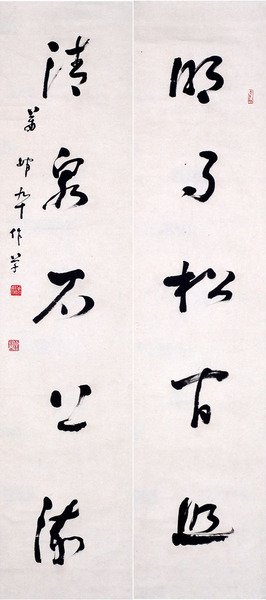 明月松間照
清泉石上流
萧娴九十作草